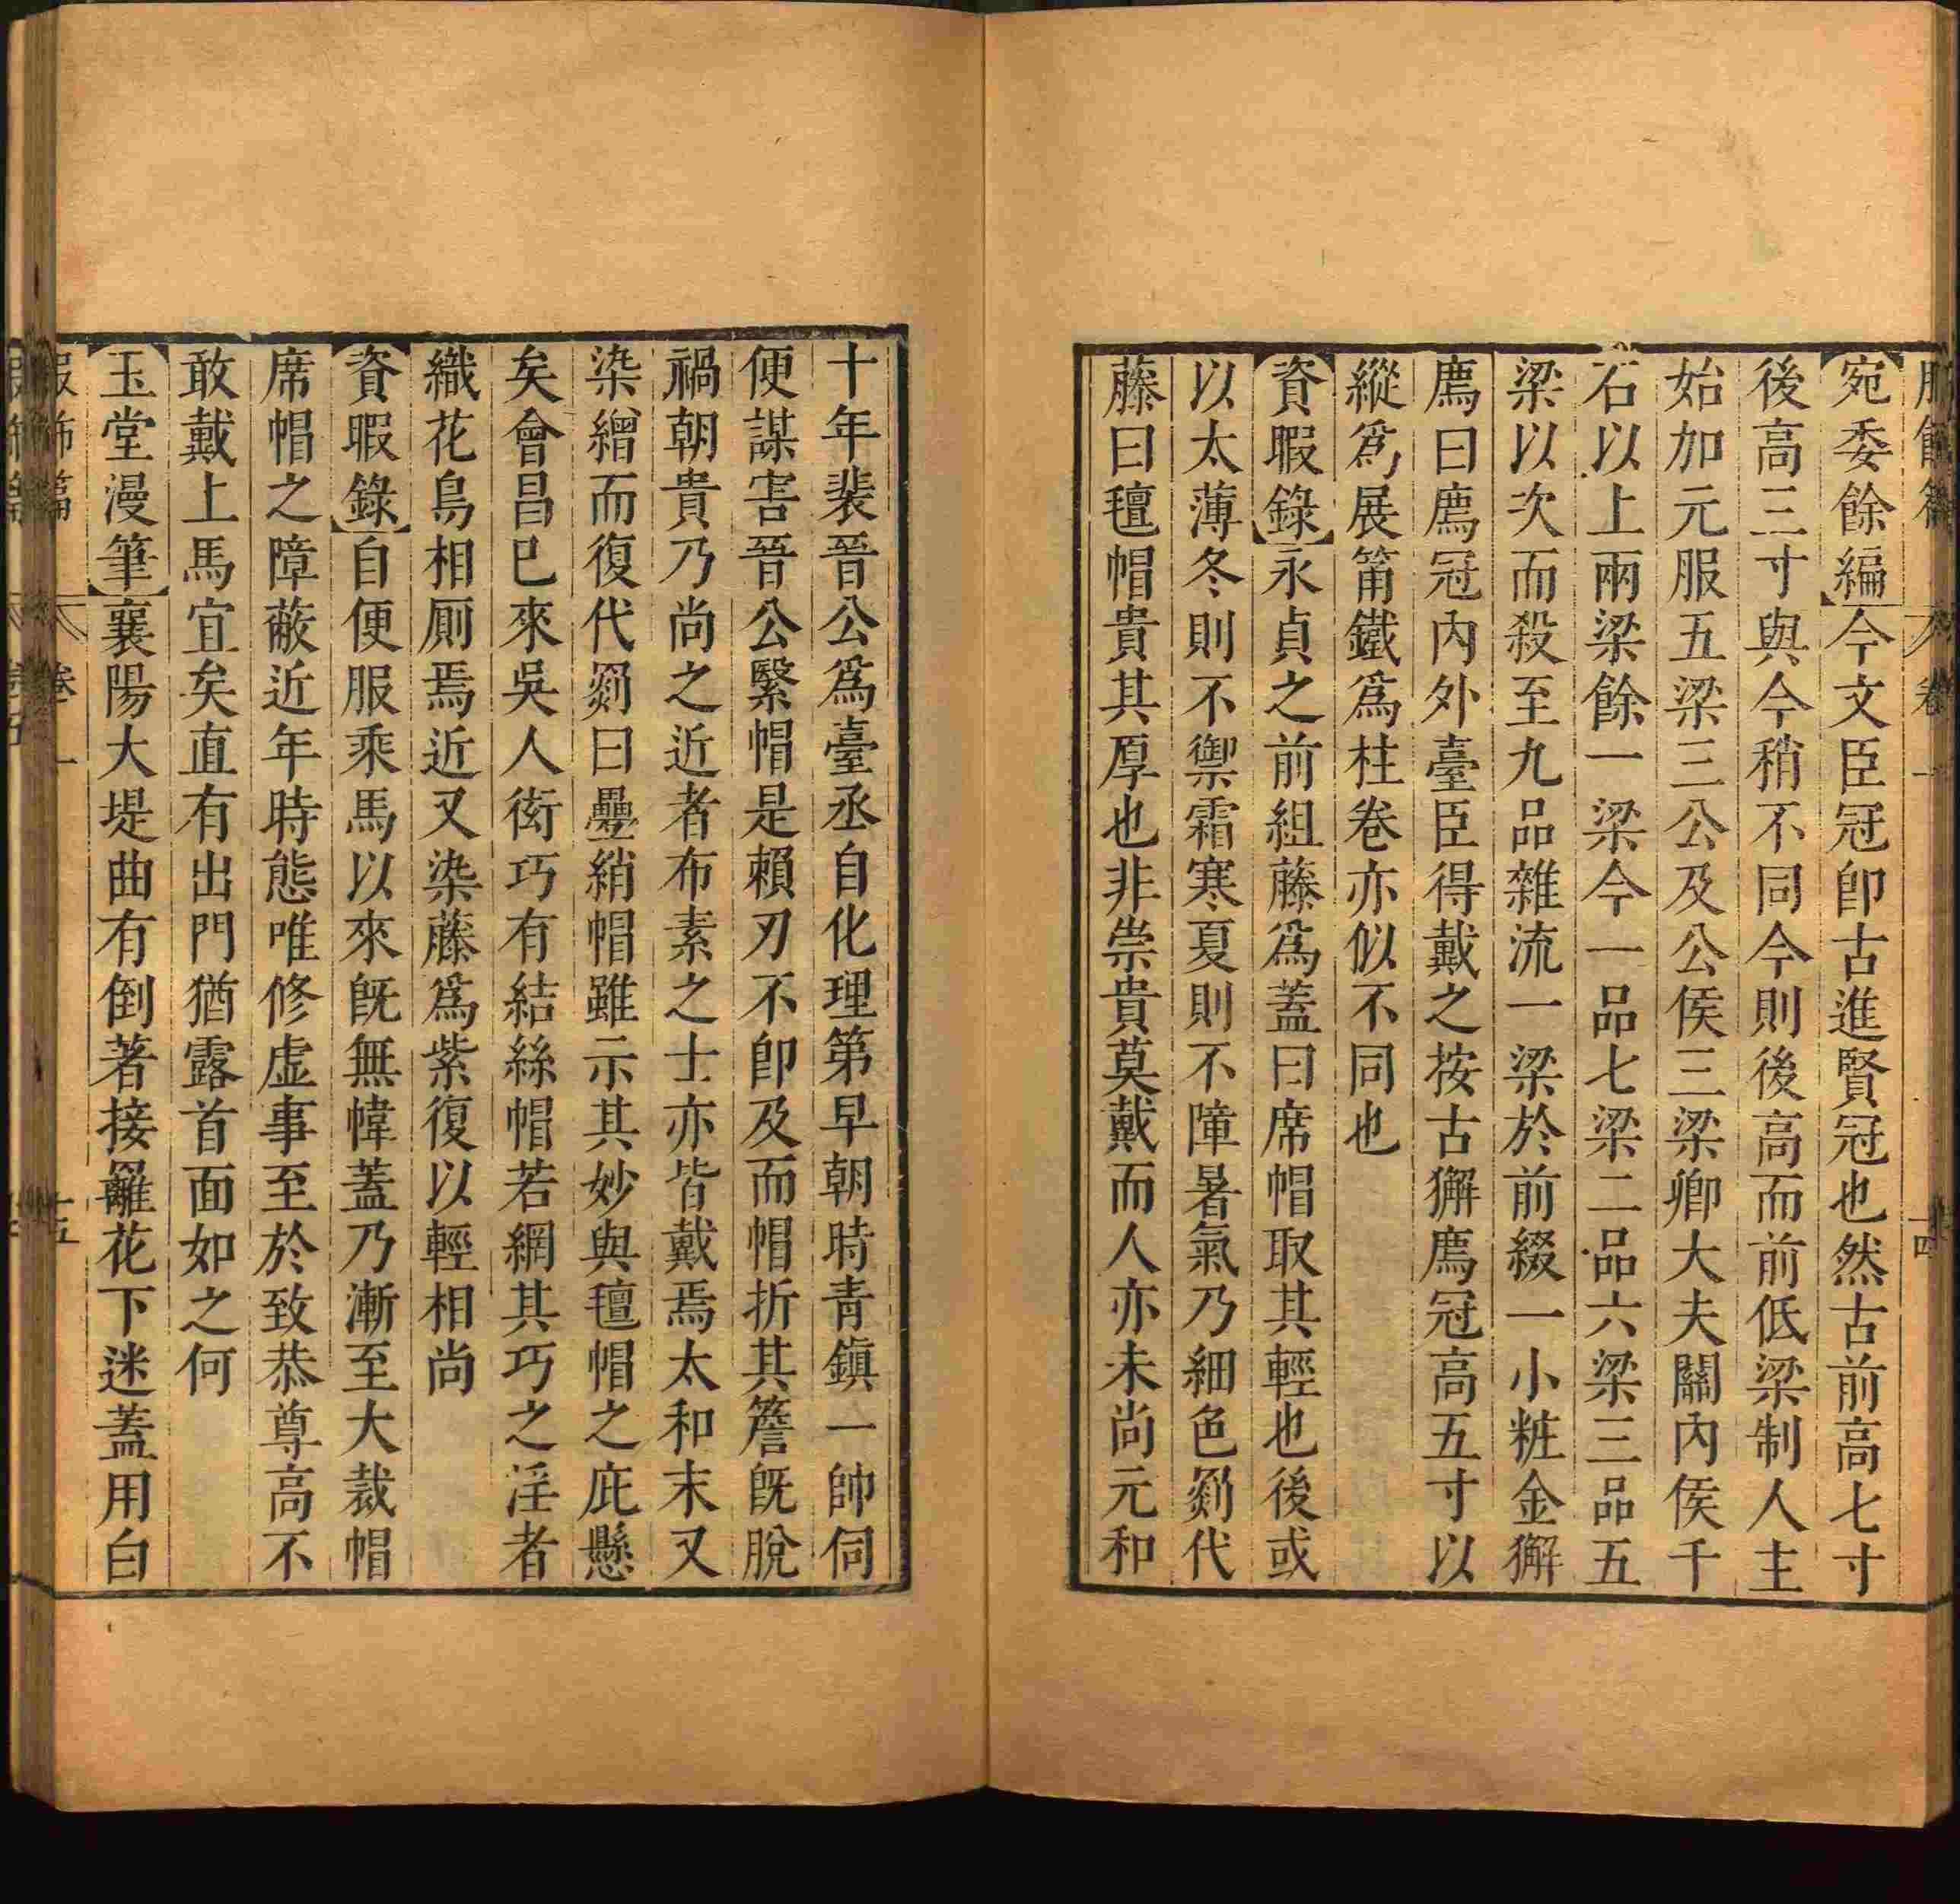 宛委餘編今文臣冠卽古進賢冠也然古前高七寸
後高三寸與今稍不同今則後高而前低梁制人主
始加元服五梁三公及公侯三梁卿大夫關內侯千
石以上兩梁餘一梁今一品七梁二品六梁三品五
梁以次而殺至九品雜流一梁於前綴一小粧金獬
廌曰廌冠內外臺臣得戴之按古獬廌冠高五寸以
縱爲展筩鐵爲柱卷亦似不同也
資暇錄永貞之前組藤爲蓋曰席帽取其輕也後或
以太薄冬則不禦霜寒夏則不障暑氣乃細色罽代
藤曰氊帽貴其厚也非崇貴莫戴而人亦未尚元和
十年裴晉公爲臺丞自化理第早朝時青鎭一帥伺
便謀害晉公緊帽是賴刃不卽及而帽折其簷旣脫
禍朝貴乃尚之近者布素之士亦皆戴焉太和末又
染繒而復代罽曰疊綃帽雖示其妙與氊帽之庇懸
矣會昌已來吳人衒巧有結絲帽若網其巧之淫者
織花鳥相厠焉近又染藤爲紫復以輕相尚
資暇錄自便服乘馬以來旣無幃蓋乃漸至大裁帽
席帽之障蔽近年時態唯修虛事至於致恭尊高不
敢戴上馬宜矣直有出門猶露首面如之何
玉堂漫筆襄陽大堤曲有倒著接䍦花下迷蓋用白
卷一
十五